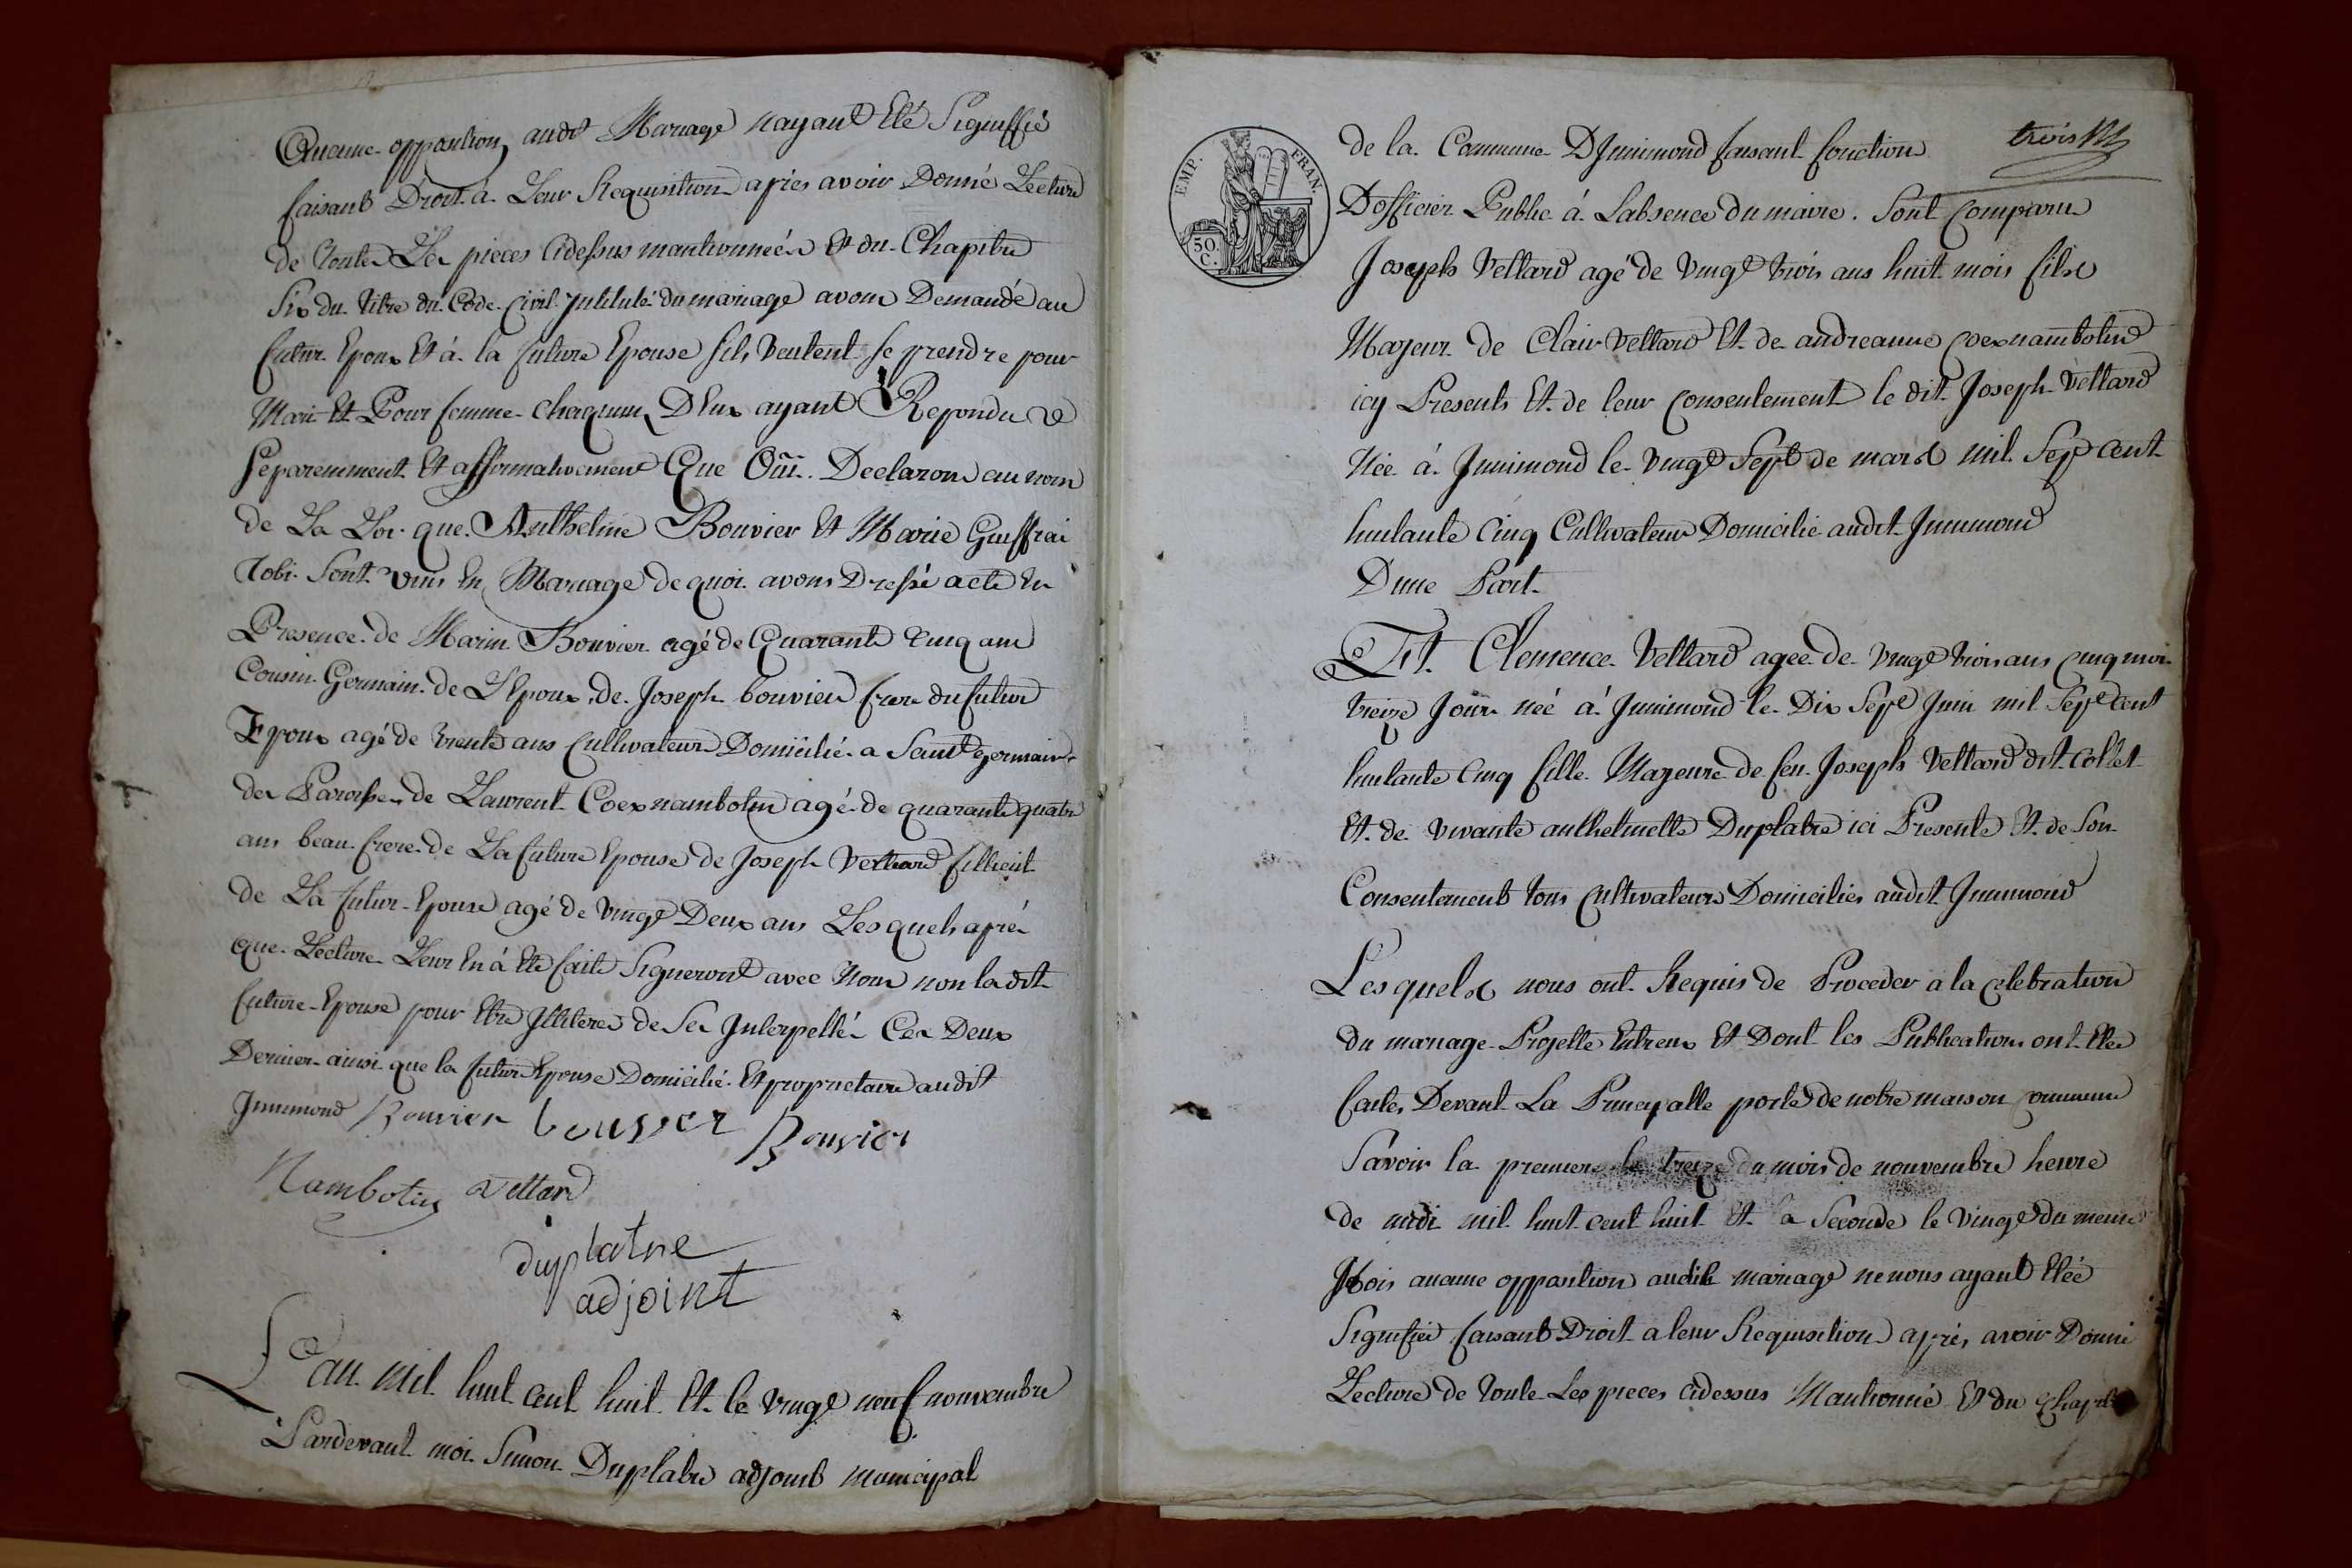 Aucune opposition audit Mariage nayant Eté Signiffié
faisant Droit a Leur Requisition apres avoir Donné Lecture
de toutes Les pieces cidessus mantionnées Et du Chapitre
Six du titre du Code Civil Intitulé du mariage avons Demandé au
futur Epoux Et á la future Epouse sils veulent se prendre pour
Mari Et Pour femme chaqunn D'Eux ayant Repondu
Separemment Et affirmativement Que Oüi Declarons au nom
de La Loi que Anthelme Bouvier Et Marie Guiffrai
Tobi Sont unis En Mariage de quoi avons Dressé acte En
Presence de Marin Bouvier agé de Quarante cinq ans
Cousin Germain de L'Epoux, de Joseph bouvier frere du futur
Epoux agé de trente ans Cultivateurs Domicilié a Saint germain
des Paroisses de Laurent Coex nambotin agé de quarante quatre
ans beau frere de La future Epouse de Joseph Vettard fillieul
de La futur Epouse agé de vingt Deux ans Lesquels aprés
que Lecture Leur En á Eté faite Signeront avec Nous non la dit
future Epouse pour Etre Illiteres de Ses Interpellés Ces Deux
Dernier ainsi que la future Epouse Domicilié Et proprietaire audit
Jnnimond Bouvier bouvier Bouvier
Nambotin Vettard
duplatre
adjoint
L'an mil huit cent huit Et le vingt neuf nouvembre
Pardevant moi Simon Duplatre adjoint municipal
trois
EMP. FRAN.
50 C.
de la Commune DJnnimond faisant fonction
Dofficier Public á Labsence du maire. Sont Comparus
Joseph Vettard agé de vingt trois ans huit mois fils
Majeur de Clair Vettard Et de andreanne Coex nambotin
icy Presents Et de leur Consentement le dit Joseph Vettard
Née á Jnnimond le vingt Sept de mars mil Sept cent
huitante Cinq Cultivateur Domicilie audit Jnnimond
Dune Part
Et Clemence Vettard agée de vingt trois ans cinq mois
treize Jour née á Jnnimond le Dix Sept Juin mil Sept Cent
huitante Cinq fille Majeure de feu Joseph Vettard dit Collet
Et de vivante anthelmette Duplatre ici Presente Et de Son
Consentement tous Cultivateurs Domicilies audit Jnnimond
Lesquels nous ont Requis de Proceder a la Celebration
du mariage Projetté Entreux Et Dont les Publications ont Etée
faites Devant La Principalle porte de notre maison commune
Savoir la premiere le treize du mois de nouvembre heure
de midi mil huit cent huit Et la Seconde le vingt du meme
Mois aucune opposition audit mariage ne nous ayant Etée
Signifiée faisant Droit a leur Requisition aprés avoir Donné
Lecture de toute Les pieces cidessus Mantionné Et du Chapitre